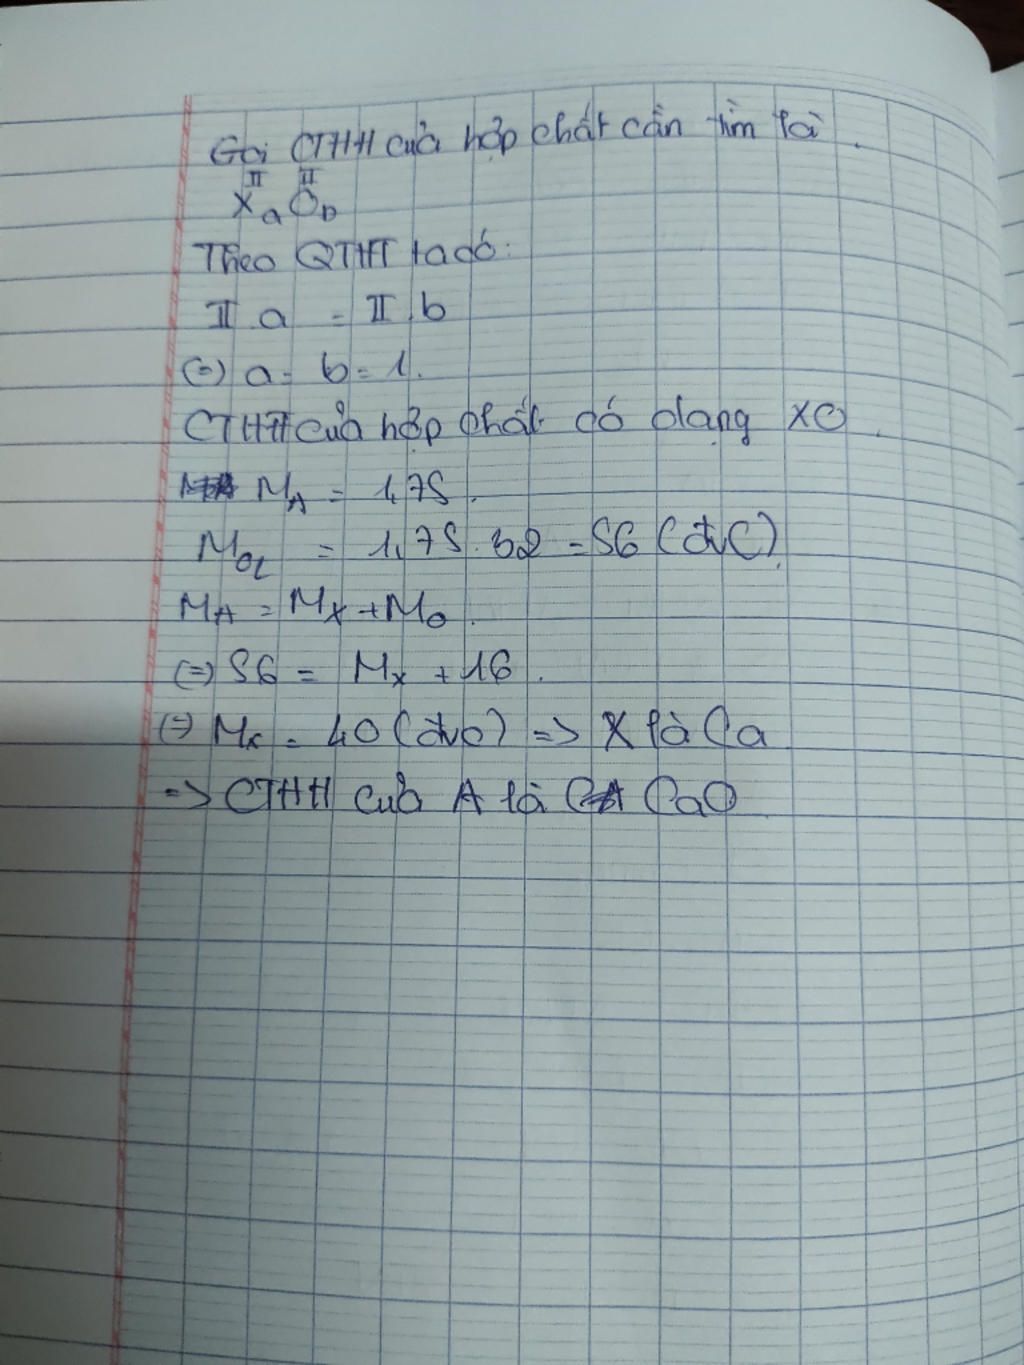 Gọi CTHH của hợp chất cần tìm là
II II
XaOb
Theo QTHT ta có:
II a = II b
(=) a = b = 1.
CTHH của hợp chất có dạng XO.
MA = 1,75.
MO2 = 1,75.32 = 56 (đvC)
MA = MX + MO.
(=) 56 = MX + 16.
(=) MX = 40 (đvC) => X là Ca
=> CTHH của A là CaO